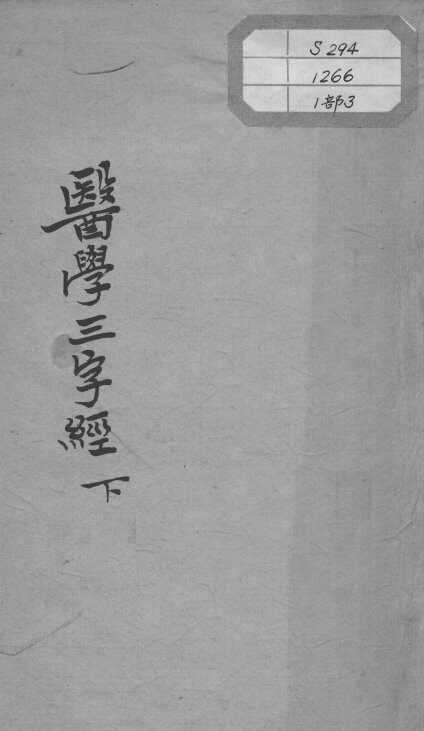 S 294
1266
1部3
醫學三字經 下